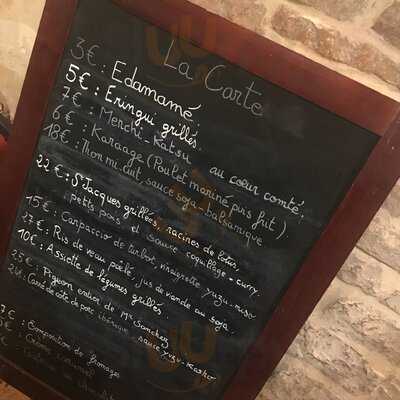 La Carte
3€ : Edamamé
5€ : Eringui grillés.
7€ : Menchi-Katsu au cœur comté.
6€ : Karaage (Poulet mariné puis frit)
18€ : Thon mi-cuit, sauce soja-balsamique
22€ : St Jacques grillées, racines de lotus,
petits pois et sauce coquillage-curry.
15€ : Carpaccio de turbot, vinaigrette yuzu-miso
27€ : Ris de veau poêlé, jus de viande au soja
10€ : Assiette de légumes grillés
25€ : Pigeon entier de Mr Sanchez
Carré de côte de porc ibérique sauce yuzu-kosho
7€ : Composition de fromages